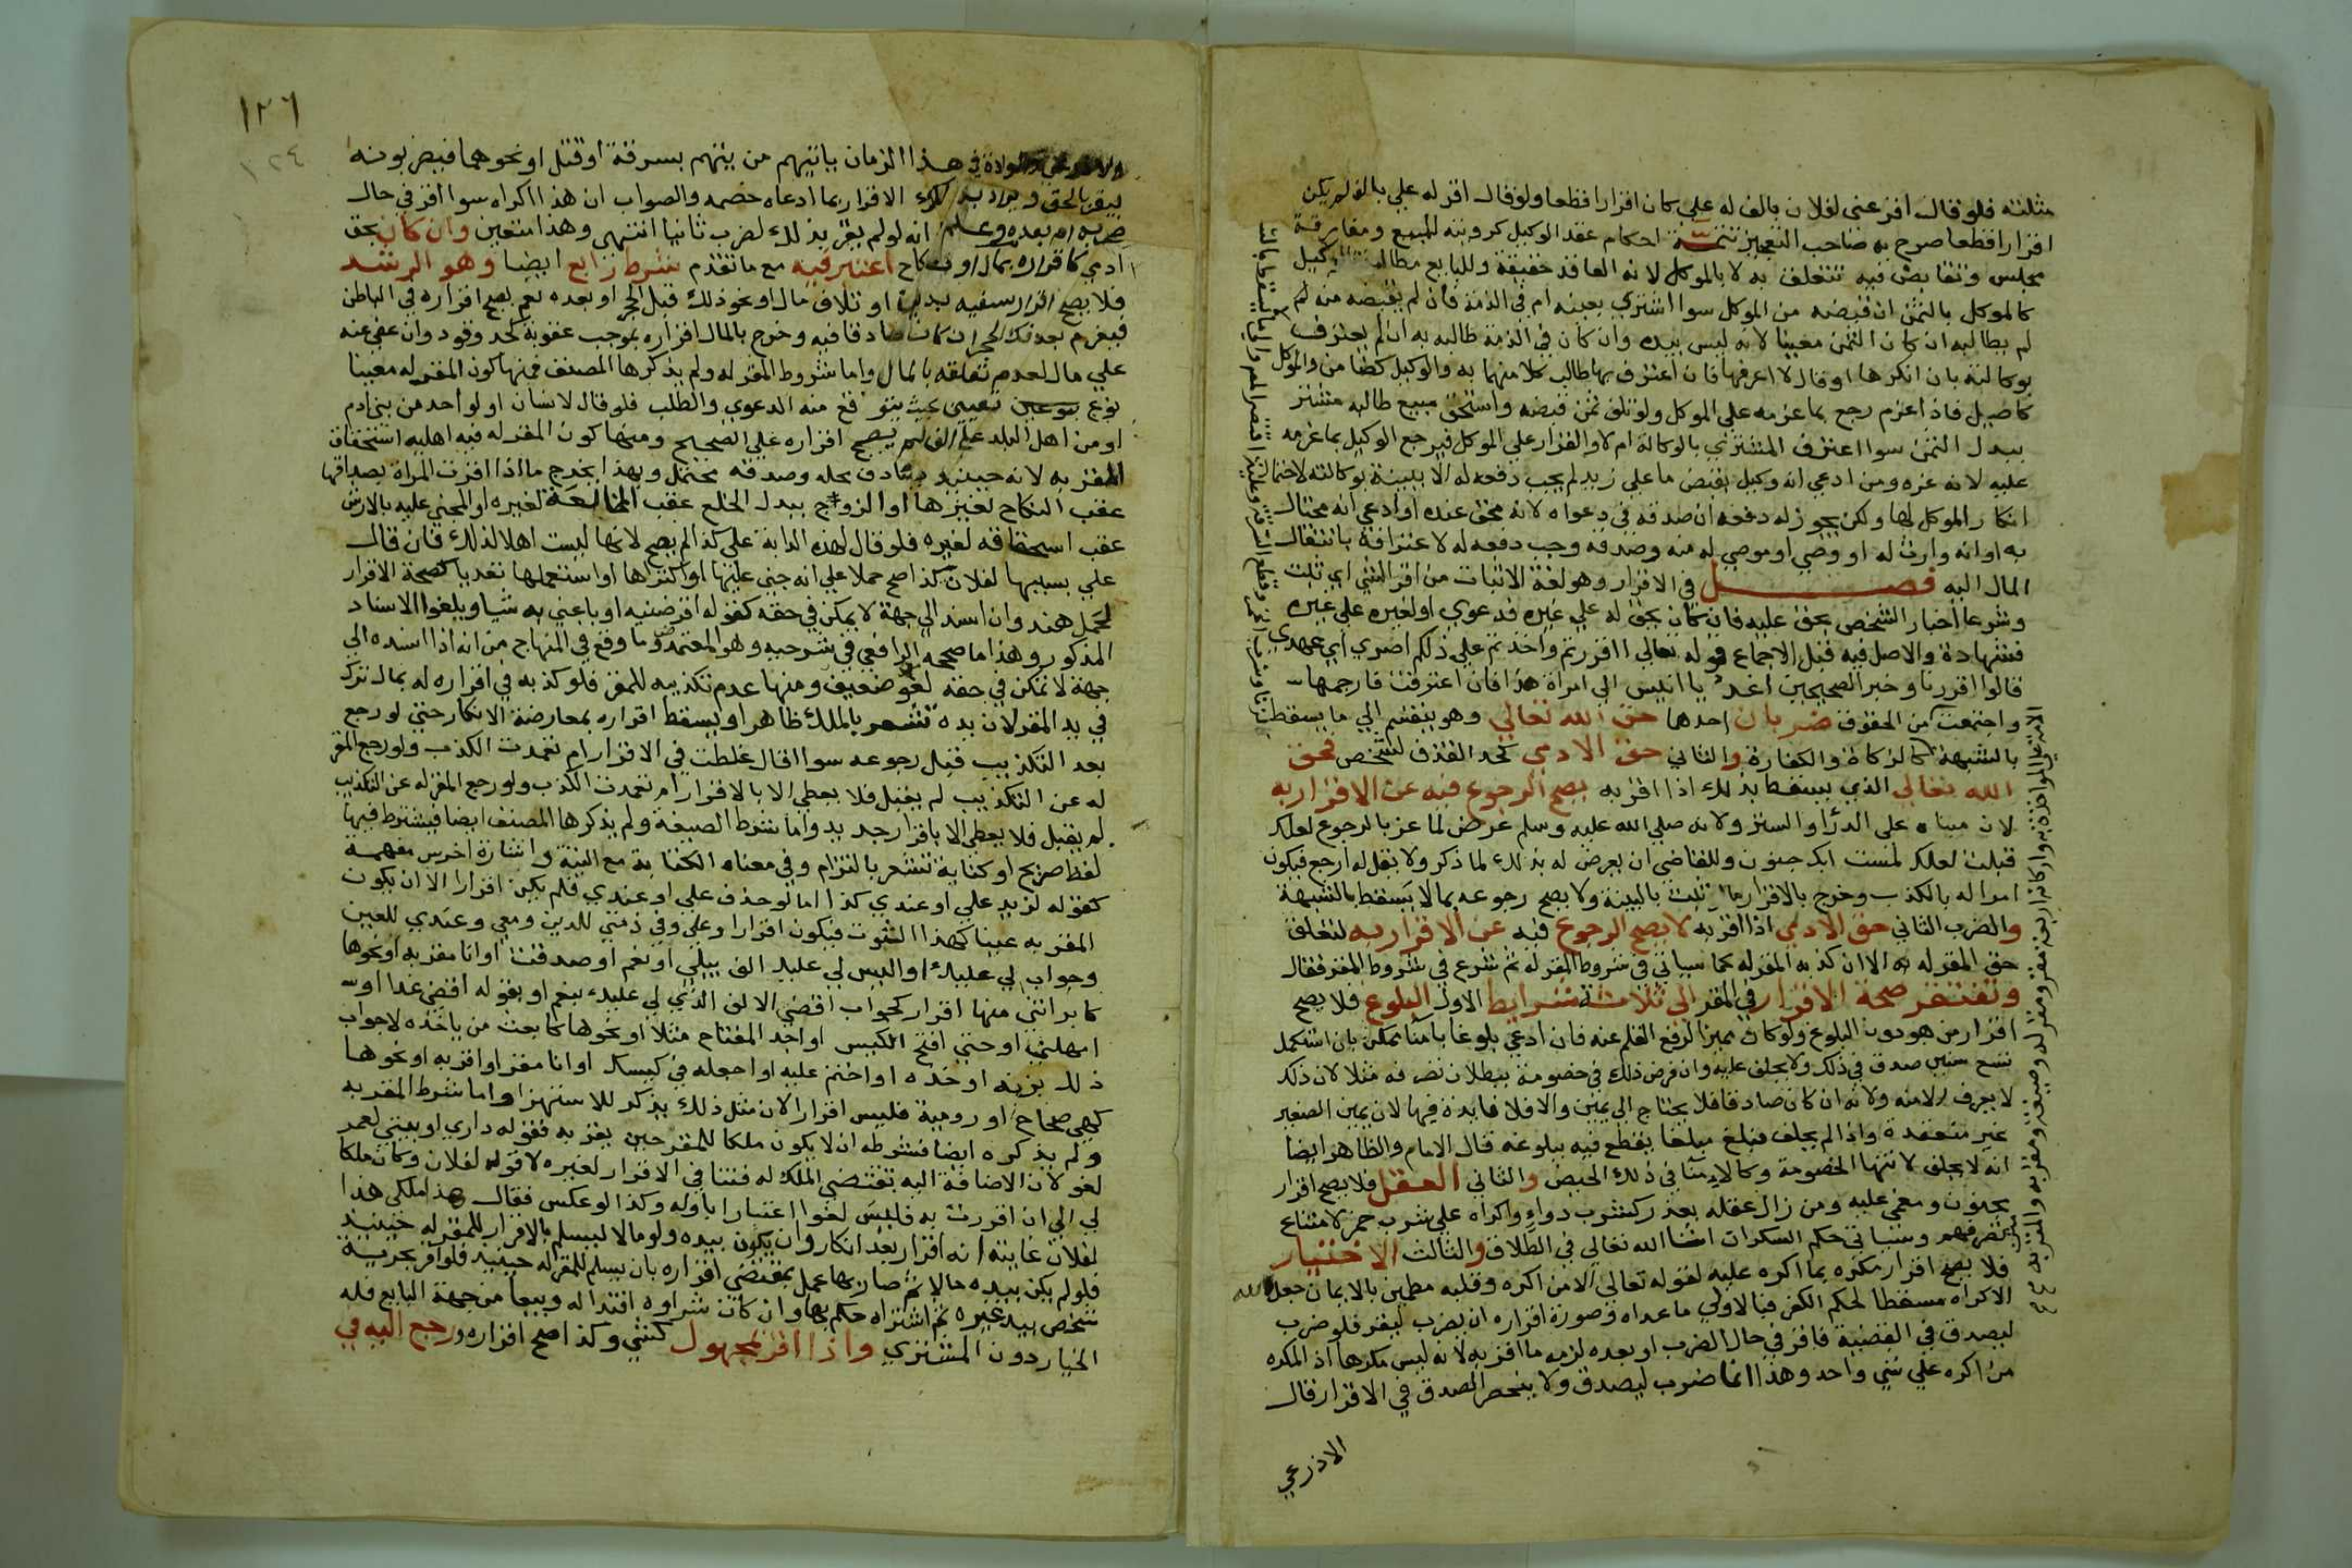 مثلته فلو قال اقر عني لفلان بالف له علي كان اقرارا قطعا ولو قال اقر له علي بالف لم يكن
اقرارا قطعا صرح به صاحب التعجيز تتمة احكام عقد الوكيل كروية المبيع ومفارقة
مجلس وتقابض فيه تتعلق به لا بالموكل لانه العاقد حقيقة وللبايع مطالبة الوكيل
كالموكل بالثمن ان قبضه من الموكل سوا اشتري بعينه ام في الذمة فان لم يقبضه منه لم
لم يطالبه ان كان الثمن معينا لانه ليس بيده وان كان في الذمة طالبه به ان لم يعترف
بوكالته بان انكرها او قال لا اعرفها فان اعترف بها طالب كلا منهما به والوكيل كضامن والموكل
كاصيل فاذا غرم رجع بما غرمه علي الموكل ولو تلف ثمن قبضه واستحق مبيع طالبه مشتر
ببدل الثمن سوا اعترف المشتري بالوكالة ام لا والقرار علي الموكل فيرجع الوكيل بما غرمه
عليه لانه غره ومن ادعي انه وكيل بقبض ما علي زيد لم يجب دفعه له الا ببينة بوكالته لاحتمال
انكار الموكل لها ولكن يجوز له دفعه ان صدقه في دعواه لانه محق عنده او ادعي انه محتال
به او انه وارث له او وصي او موصي له منه وصدقه وجب دفعه له لاعترافه بانتقال
المال اليه فصل في الاقرار وهو لغة الاثبات من اقر الشي اي ثبت
وشرعا اخبار الشخص بحق عليه فان كان بحق له علي غيره فدعوي او لغيره علي غيره
فشهادة والاصل فيه قبل الاجماع قوله تعالي ااقررتم واخذتم علي ذلكم اصري اي عهدي
قالوا اقررنا وخبر الصحيحين اغد يا انيس الي امراة هذا فان اعترفت فارجمها
واجتمعت من الحقوق ضربان احدها حق الله تعالي وهو ينقسم الي ما يسقط
بالشبهة كالزكاة والكفارة والثاني حق الادمي كحد القذف لشخص فحق
الله تعالي الذي يسقط بذلك اذا اقر به يصح الرجوع فيه عن الاقرار به
لان مبناه علي الدرا والستر ولانه صلي الله عليه وسلم عرض لماعز بالرجوع لعلك
قبلت لعلك لمست ابك جنون وللقاضي ان يعرض له بذلك لما ذكر ولا يقل له ارجع فيكون
امرا له بالكذب وخرج بالاقرار ما ثبت بالبينة ولا يصح رجوعه بما لا يسقط بالشبهة
والضرب الثاني حق الادمي اذا اقر به لا يصح الرجوع فيه عن الاقرار به لتعلق
حق المقر له به الا ان كذبه المقر له كما سياتي في شروط المقر له ثم شرع في شروط المقر فقال
وتفتقر صحة الاقرار في المقر الي ثلاثة شرايط الاول البلوغ فلا يصح
اقرار من هو دون البلوغ ولو كان مميزا لرفع القلم عنه فان ادعي بلوغا بامنا ممكن بان استكمل
تسع سنين صدق في ذلك ولا يحلف عليه وان فرض ذلك في خصومة ببطلان تصرفه مثلا لان ذلك
لا يعرف الا منه ولانه ان كان صادقا فلا يحتاج الي يمين والا فلا فايدة فيها لان يمين الصغير
غير منعقدة واذا لم يحلف فبلغ مبلغا يقطع فيه ببلوغه قال الامام والظاهر ايضا
انه لا يحلف لانتها الخصومة وكالامنا في ذلك الحيض والثاني العقل فلا يصح اقرار
مجنون ومغمي عليه ومن زال عقله بعذر كشرب دواء واكراه علي شرب خمر لامتناع
تصرفهم وسياتي حكم السكران انشا الله تعالي في الطلاق والثالث الاختيار
فلا يصح اقرار مكره بما اكره عليه لقوله تعالي الا من اكره وقلبه مطمين بالايمان جعل الله
الاكراه مسقطا لحكم الكفر فبالاولي ما عداه وصورة اقراره ان يضرب ليقر فلو ضرب
ليصدق في القضية فاقر في حال الضرب او بعده لزمه ما اقر به لانه ليس مكرها اذ المكره
من اكره علي شي واحد وهذا انما ضرب ليصدق ولا ينحصر الصدق في الاقرار قال
الاذرعي
١٢٦
١٢٤
والولاة في هذا الزمان ياتيهم من يتهم بسرقة او قتل او نحوهما فيضربونه
ليقر بالحق ويراد بذلك الاقرار بما ادعاه خصمه والصواب ان هذا اكراه سوا اقر في حال
ضربه ام بعده وعلم انه لو لم يقر بذلك لضرب ثانيا انتهي وهذا متعين وان كان بحق
ادمي كاقراره بمال او نكاح اعتبر فيه مع ما تقدم شرط رابع ايضا وهو الرشد
فلا يصح اقرار سفيه بدين او تلاف مال او نحو ذلك قبل الحجر او بعده نعم يصح اقراره في الباطن
فيغرم بعد فك الحجر ان كان صادقا فيه وخرج بالمال اقراره بموجب عقوبة كحد وقود وان عفي عنه
علي مال لعدم تعلقه بالمال واما شروط المقر له ولم يذكرها المصنف فمنها كون المقر له معينا
نوع تعيين بحيث يتوقع منه الدعوي والطلب فلو قال لانسان او لواحد من بني ادم
او من اهل البلد علي الف لم يصح اقراره علي الصحيح ومنها كون المقر له فيه اهلية استحقاق
المقر به لانه حينيذ يصادف محله وصدقه محتمل وبهذا يخرج ما اذا اقرت المراة بصداقها
عقب النكاح لغيرها او الزوج ببدل الخلع عقب المخالعة لغيره او المجني عليه بالارش
عقب استحقاقه لغيره فلو قال لهذه الدابة علي كذا لم يصح لانها ليست اهلا لذلك فان قال
علي بسببها لفلان كذا صح حملا علي انه جني عليها او اكتراها او استعملها تعديا كصحة الاقرار
لحمل هند وان اسند الي جهة لا يمكن في حقه كقوله اقرضنيه او باعني به شيا ويلغوا الاسناد
المذكور وهذا ما صححه الرافعي في شرحيه وهو المعتمد وما وقع في المنهاج من انه اذا اسنده الي
جهة لا تمكن في حقه لغو ضعيف ومنها عدم تكذيبه للمقر فلو كذبه في اقراره له بمال ترك
في يد المقر لان يده تشعر بالملك ظاهرا ويسقط اقراره بمعارضة الانكار حتي لو رجع
بعد التكذيب قبل رجوعه سوا قال غلطت في الاقرار ام تعمدت الكذب ولو رجع المقر
له عن التكذيب لم يقبل فلا يعطي الا بالاقرار ام تعمدت الكذب ولو رجع المقر له عن التكذيب
لم يقبل فلا يعطي الا باقرار جديد واما شرط الصيغة ولم يذكرها المصنف ايضا فيشترط فيها
لفظ صريح او كناية تشعر بالتزام وفي معناه الكتابة مع النية واشارة اخرس مفهمة
كقوله لزيد علي او عندي كذا اما لو حذف علي او عندي فلم يكن اقرارا الا ان يكون
المقر به عينا كهذا الثوب فيكون اقرارا وعلي وفي ذمتي للدين ومعي وعندي للعين
وجواب لي عليك او اليس لي عليك الف ببلي او نعم او صدقت او انا مقر به او نحوها
كابراتني منها اقرار كجواب اقضي الالف الذي لي عليك بنعم او بقوله اقضي غدا او
امهلني او حتي افتح الكيس او اجد المفتاح مثلا او نحوها كابعث من ياخذه لا جواب
ذلك بزنه او خذه او اختم عليه او اجعله في كيسك او انا مقر او اقر به او نحوها
كهي صحاح او رومية فليس اقرارا لان مثل ذلك يذكر للاستهزا واما شرط المقر به
ولم يذكره ايضا فشرطه ان لا يكون ملكا للمقر حين يقر به فقوله داري او بيتي لعمر
لغو لان الاضافة اليه تقتضي الملك له فتنافي الاقرار لغيره لا قوله لفلان وكان ملكا
لي الي ان اقررت به فليس لغوا اعتبارا باوله وكذا لو عكس فقال هذا ملكي هذا
لفلان غايته انه اقرار بعد انكار وان يكون بيده ولو مالا ليسلم بالاقرار للمقر له حينيذ
فلو لم يكن بيده حالا ثم صار بها عمل بمقتضي اقراره بان يسلم للمقر له حينيذ فلو اقر بحرية
شخص بيد غيره ثم اشتراه حكم بها وان كان شراوه افتدا له وبيعا من جهة البايع فله
الخيار دون المشتري واذا اقر بمجهول كشي وكذا صح اقراره ورجع اليه في